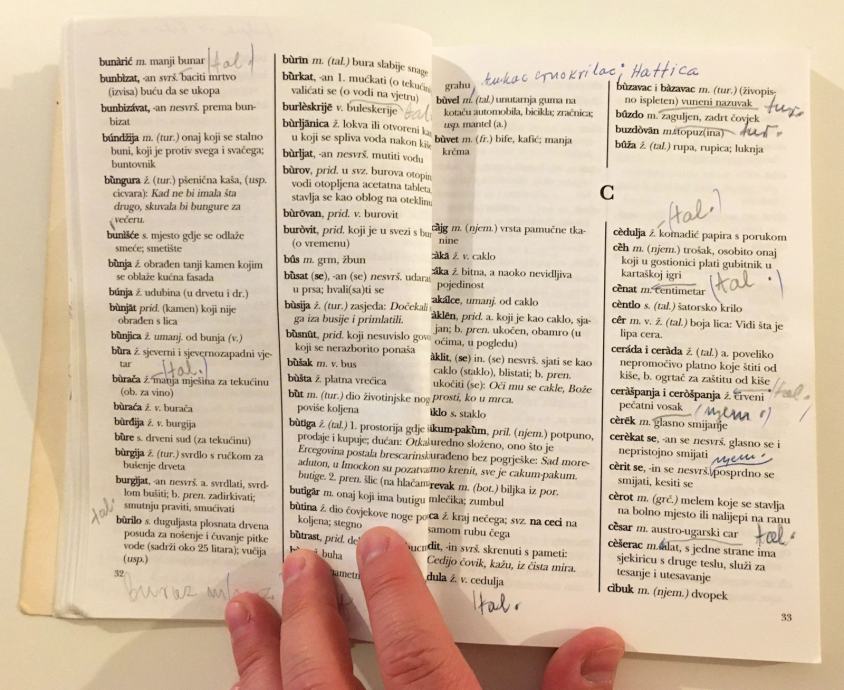 bunàrić m. manji bunar (tal.)
bunbìzat, -an svrš. baciti mrtvo
(izvisa) buću da se ukopa
bunbizávat, -an nesvrš. prema bun-
bizat
búndžija m. (tur.) onaj koji se stalno
buni, koji je protiv svega i svačega;
buntovnik
bùngura ž. (tur.) pšenična kaša, (usp.
cicvara): Kad ne bi imala šta
drugo, skuvala bi bungure za
večeru.
bunìšće s. mjesto gdje se odlaže
smeće; smetište
bùnja ž. obrađen tanji kamen kojim
se oblaže kućna fasada
búnja ž. udubina (u drvetu i dr.)
bùnját prid. (kamen) koji nije
obrađen s lica
bùnjica ž. umanj. od bunja (v.)
bùra ž. sjeverni i sjeverozapadni vje-
tar
(tal.)
bùrača ž. manja mješina za tekućinu
(ob. za vino)
bùraća ž. v. burača
bùrđija ž. v. burgija
bùre s. drveni sud (za tekućinu)
bùrgija ž. (tur.) svrdlo s ručkom za
bušenje drveta
burgìjat, -an nesvrš. a. svrdlati, svrd-
lom bušiti; b. pren. zadirkivati;
smutnju praviti, smućivati
tal.
bùrilo s. duguljasta plosnata drvena
posuda za nošenje i čuvanje pitke
vode (sadrži oko 25 litara); vučija
(usp.)
32
buraz
bùrin m. (tal.) bura slabije snage
bùrkat, -an 1. mućkati (o tekućin
valićati se (o vodi na vjetru)
burlèskrijē v. buleskerije tal
bùrljànica ž. lokva ili otvoreni kan
u koji se spliva voda nakon kiše
bùrljat, -an nesvrš. mutiti vodu
bùrov, prid. u svz. burova otopin
vodi otopljena acetatna tableta
stavlja se kao oblog na oteklinu
bùrōvan, prid. v. burovit
buròvit, prid. koji je u svezi s bur
(o vremenu)
bûs m. grm, žbun
bùsat (se), -an (se) nesvrš. udarat
u prsa; hvali(sa)ti se
bùsija ž. (tur.) zasjeda: Dočekali
ga iza busije i primlatili.
bùsnūt, prid. koji nesuvislo govo
koji se nerazborito ponaša
bùšak m. v. bus
bùšta ž. platna vrećica
bût m. (tur.) dio životinjske nog
poviše koljena
bùtiga ž. (tal.) 1. prostorija gdje
prodaje i kupuje; dućan: Otkal
Ercegovina postala brescarinsk
aduton, u Imockon su pozatva
butige. 2. pren. šlic (na hlačam
butìgār m. onaj koji ima butigu
bùtina ž. dio čovjekove noge po
koljena; stegno
bùtrast, prid. de
buha
grahu, kukac crnokrilac; Hattica
bùvel m. (tal.) unutarnja guma na
kotaču automobila, bicikla; zračnica;
usp. mantel (a.)
bùvet m. (fr.) bife, kafić; manja
krčma
bùzavac i bàzavac m. (tur.) (živopis-
no ispleten) vuneni nazuvak tur.
bûzdo m. zaguljen, zadrt čovjek
buzdòvān m. topuz(ina) tur.
bûža ž. (tal.) rupa, rupica; luknja
C
càjg m. (njem.) vrsta pamučne tka-
nine
càkā ž. v. caklo
càka ž. bitna, a naoko nevidljiva
pojedinost
cakálce, umanj. od caklo
càklēn, prid. a. koji je kao caklo, sja-
jan; b. pren. ukočen, obamro (u
očima, u pogledu)
càklit, (se) in. (se) nesvrš. sjati se kao
caklo (staklo), blistati; b. pren.
ukočiti (se): Oči mu se cakle, Bože
prosti, ko u mrca.
càklo s. staklo
cakum-pakùm, pril. (njem.) potpuno,
uredno složeno, ono što je
urađeno bez pogrješke: Sad more-
mo krenit, sve je cakum-pakum.
revak m. (bot.) biljka iz por.
mlečika; zumbul
ca ž. kraj nečega; svz. na ceci na
samom rubu čega
dit, -in svrš. skrenuti s pameti:
Cedijo čovik, kažu, iz čista mira.
dula ž. v. cedulja
Ital.
(tal.)
cèdulja ž. komadić papira s porukom
cêh m. (njem.) trošak, osobito onaj
koji u gostionici plati gubitnik u
kartaškoj igri
cènat m. centimetar (tal.)
cèntlo s. (tal.) šatorsko krilo
cêr m. v. ž. (tal.) boja lica: Vidi šta je
lipa cera.
ceráda i ceràda ž. (tal.) a. poveliko
nepromočivo platno koje štiti od
kiše, b. ogrtač za zaštitu od kiše
ceràšpanja i ceròšpanja ž. crveni (tal.)
pečatni vosak (njem.)
cèrēk m. glasno smijanje
cerèkat se, -an se nesvrš. glasno se i
nepristojno smijati njem.
cèrit se, -in se nesvrš. posprdno se
smijati, kesiti se
cèrot m. (grč.) melem koje se stavlja
na bolno mjesto ili nalijepi na ranu
cèsar m. austro-ugarski car tal.
cèšerac m. alat, s jedne strane ima
sjekiricu s druge teslu, služi za
tesanje i utesavanje
cìbuk m. (njem.) dvopek
33